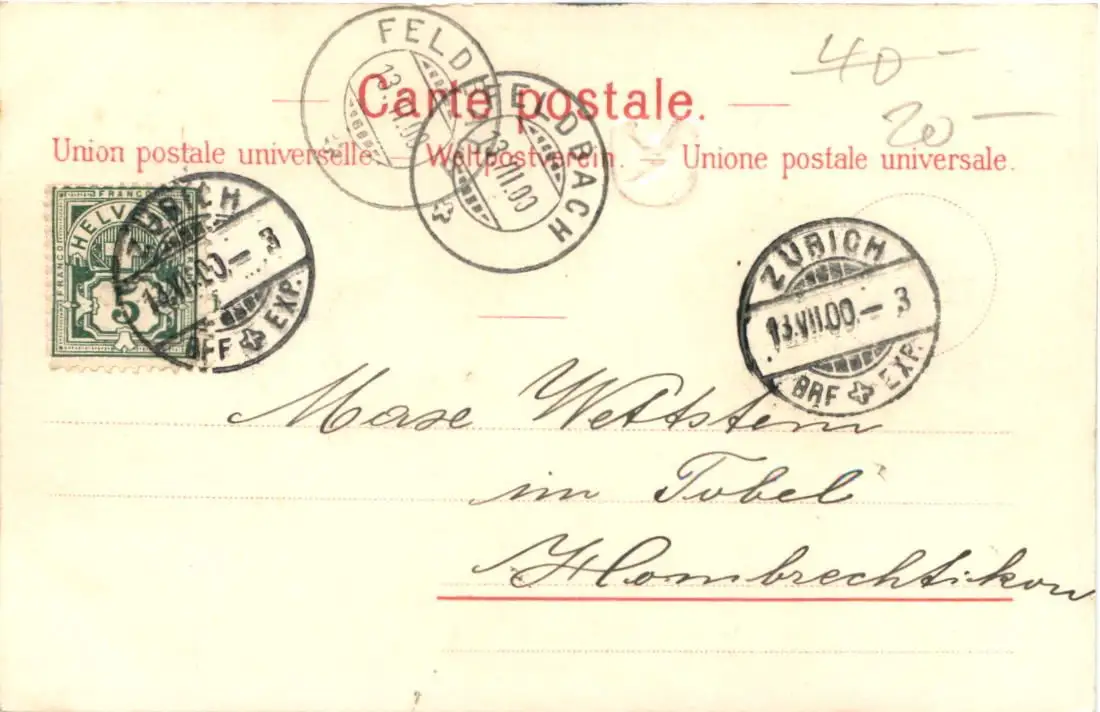 40-
20-
FELDBACH
13.VII.00
FELDBACH
13.VII.00
Carte postale.
Union postale universelle. — Weltpostverein. — Unione postale universale.
FRANCO
HELVETIA
FRANCO
5
ZÜRICH
13.VII.00.-3
BRF EXP.
ZÜRICH
13.VII.00.-3
BRF EXP.
Wettstein
im Tobel
Hombrechtikon